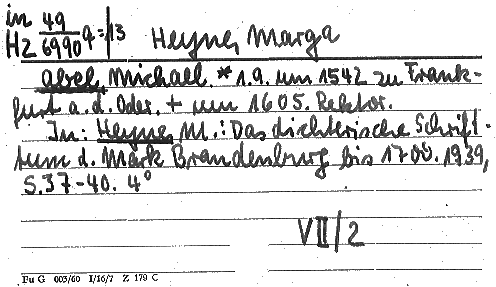 in 49
Hz 6990 q=13 Heyne, Marga
Abel, Michael. * 1.9. um 1542 zu Frank-
furt a.d. Oder. + um 1605. Rektor.
In: Heyne, M.: Das dichterische Schrift-
tum d. Mark Brandenburg bis 1700. 1939,
S. 37-40. 4°
VII/2
Fu G 003/60 I/16/7 Z 179 C